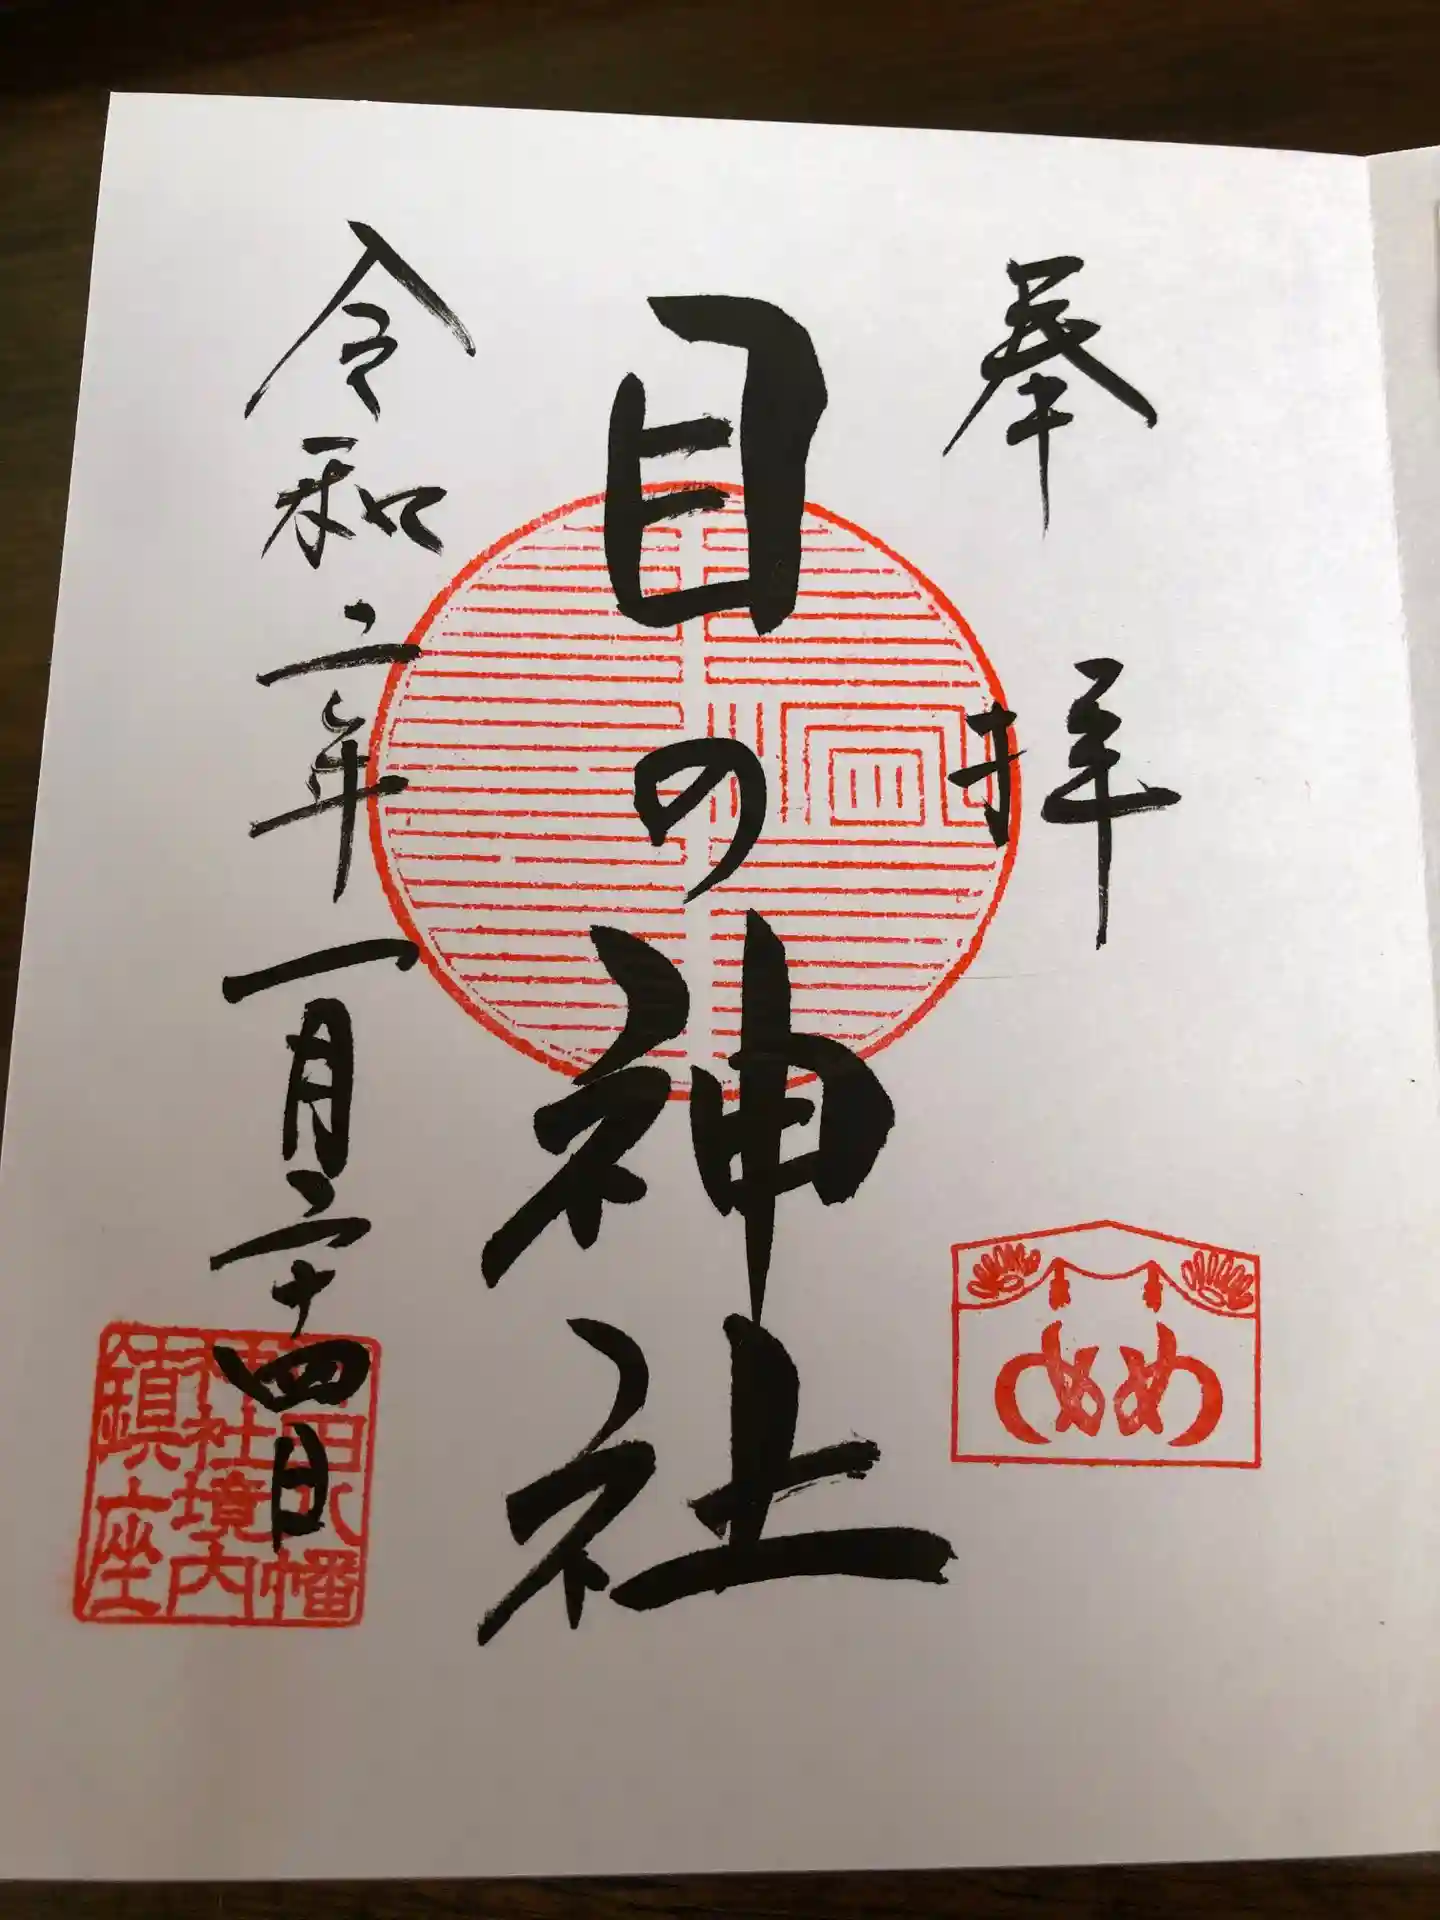 奉拝
目の神社
令和二年一月二十四日
めめ
田八幡
神社境内
鎮座